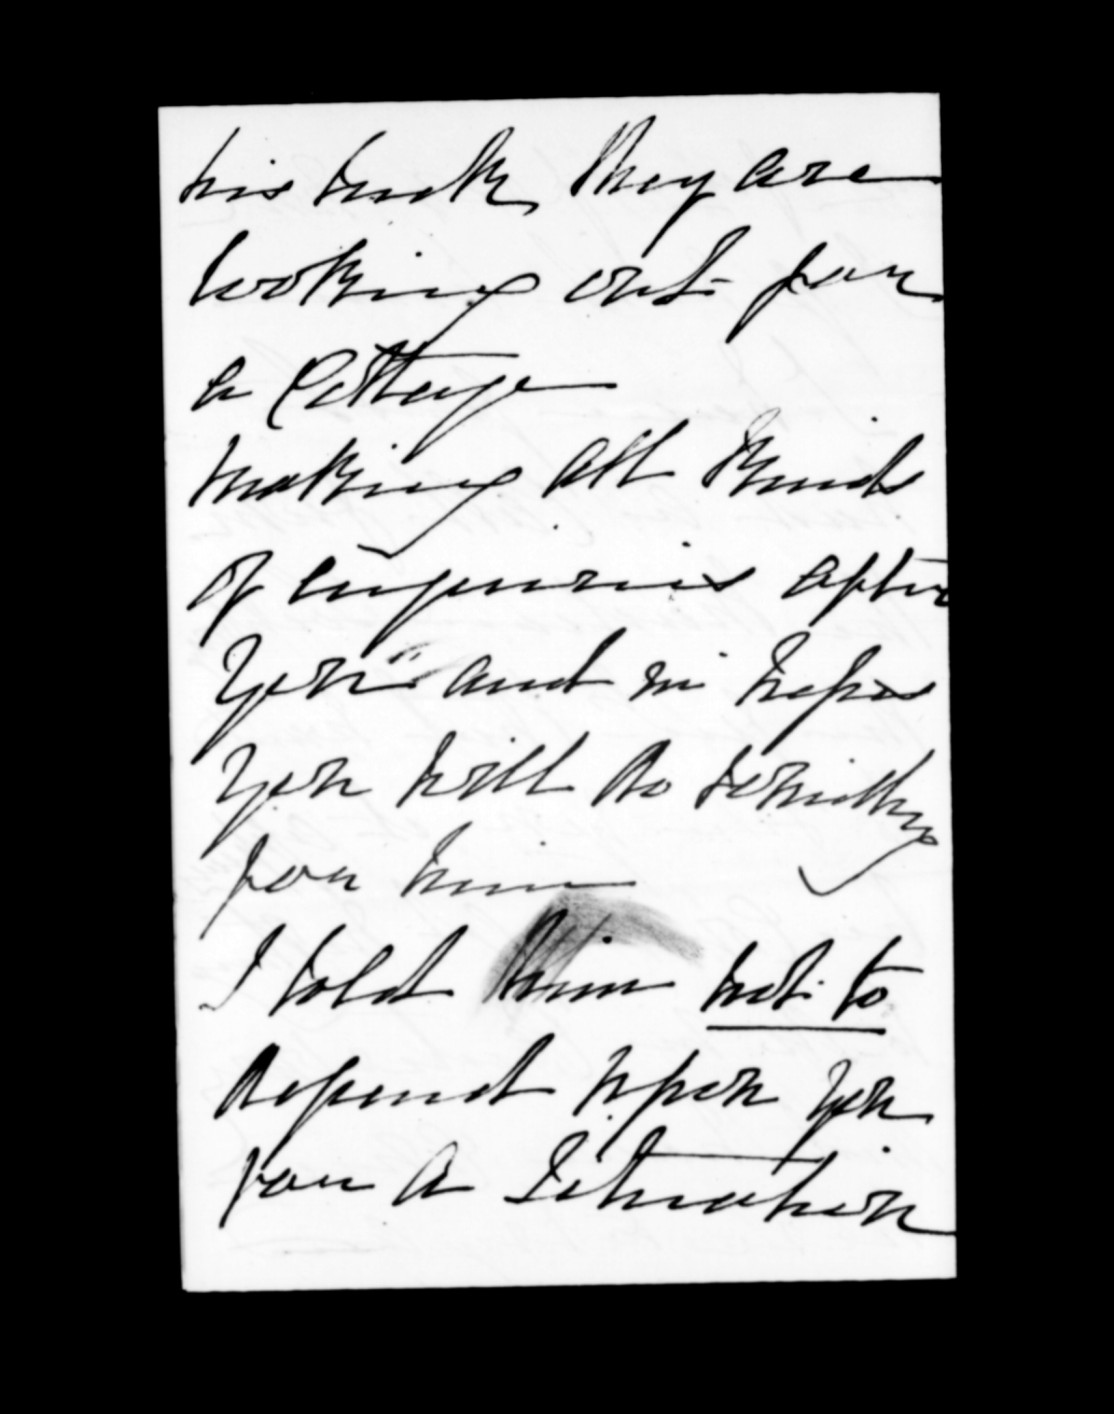 his luck, they are
looking out for
a Cottage
making all kinds
of enquiries after
you and in hopes
you will do
for him
I told him not to
depend upon you
for a Situation